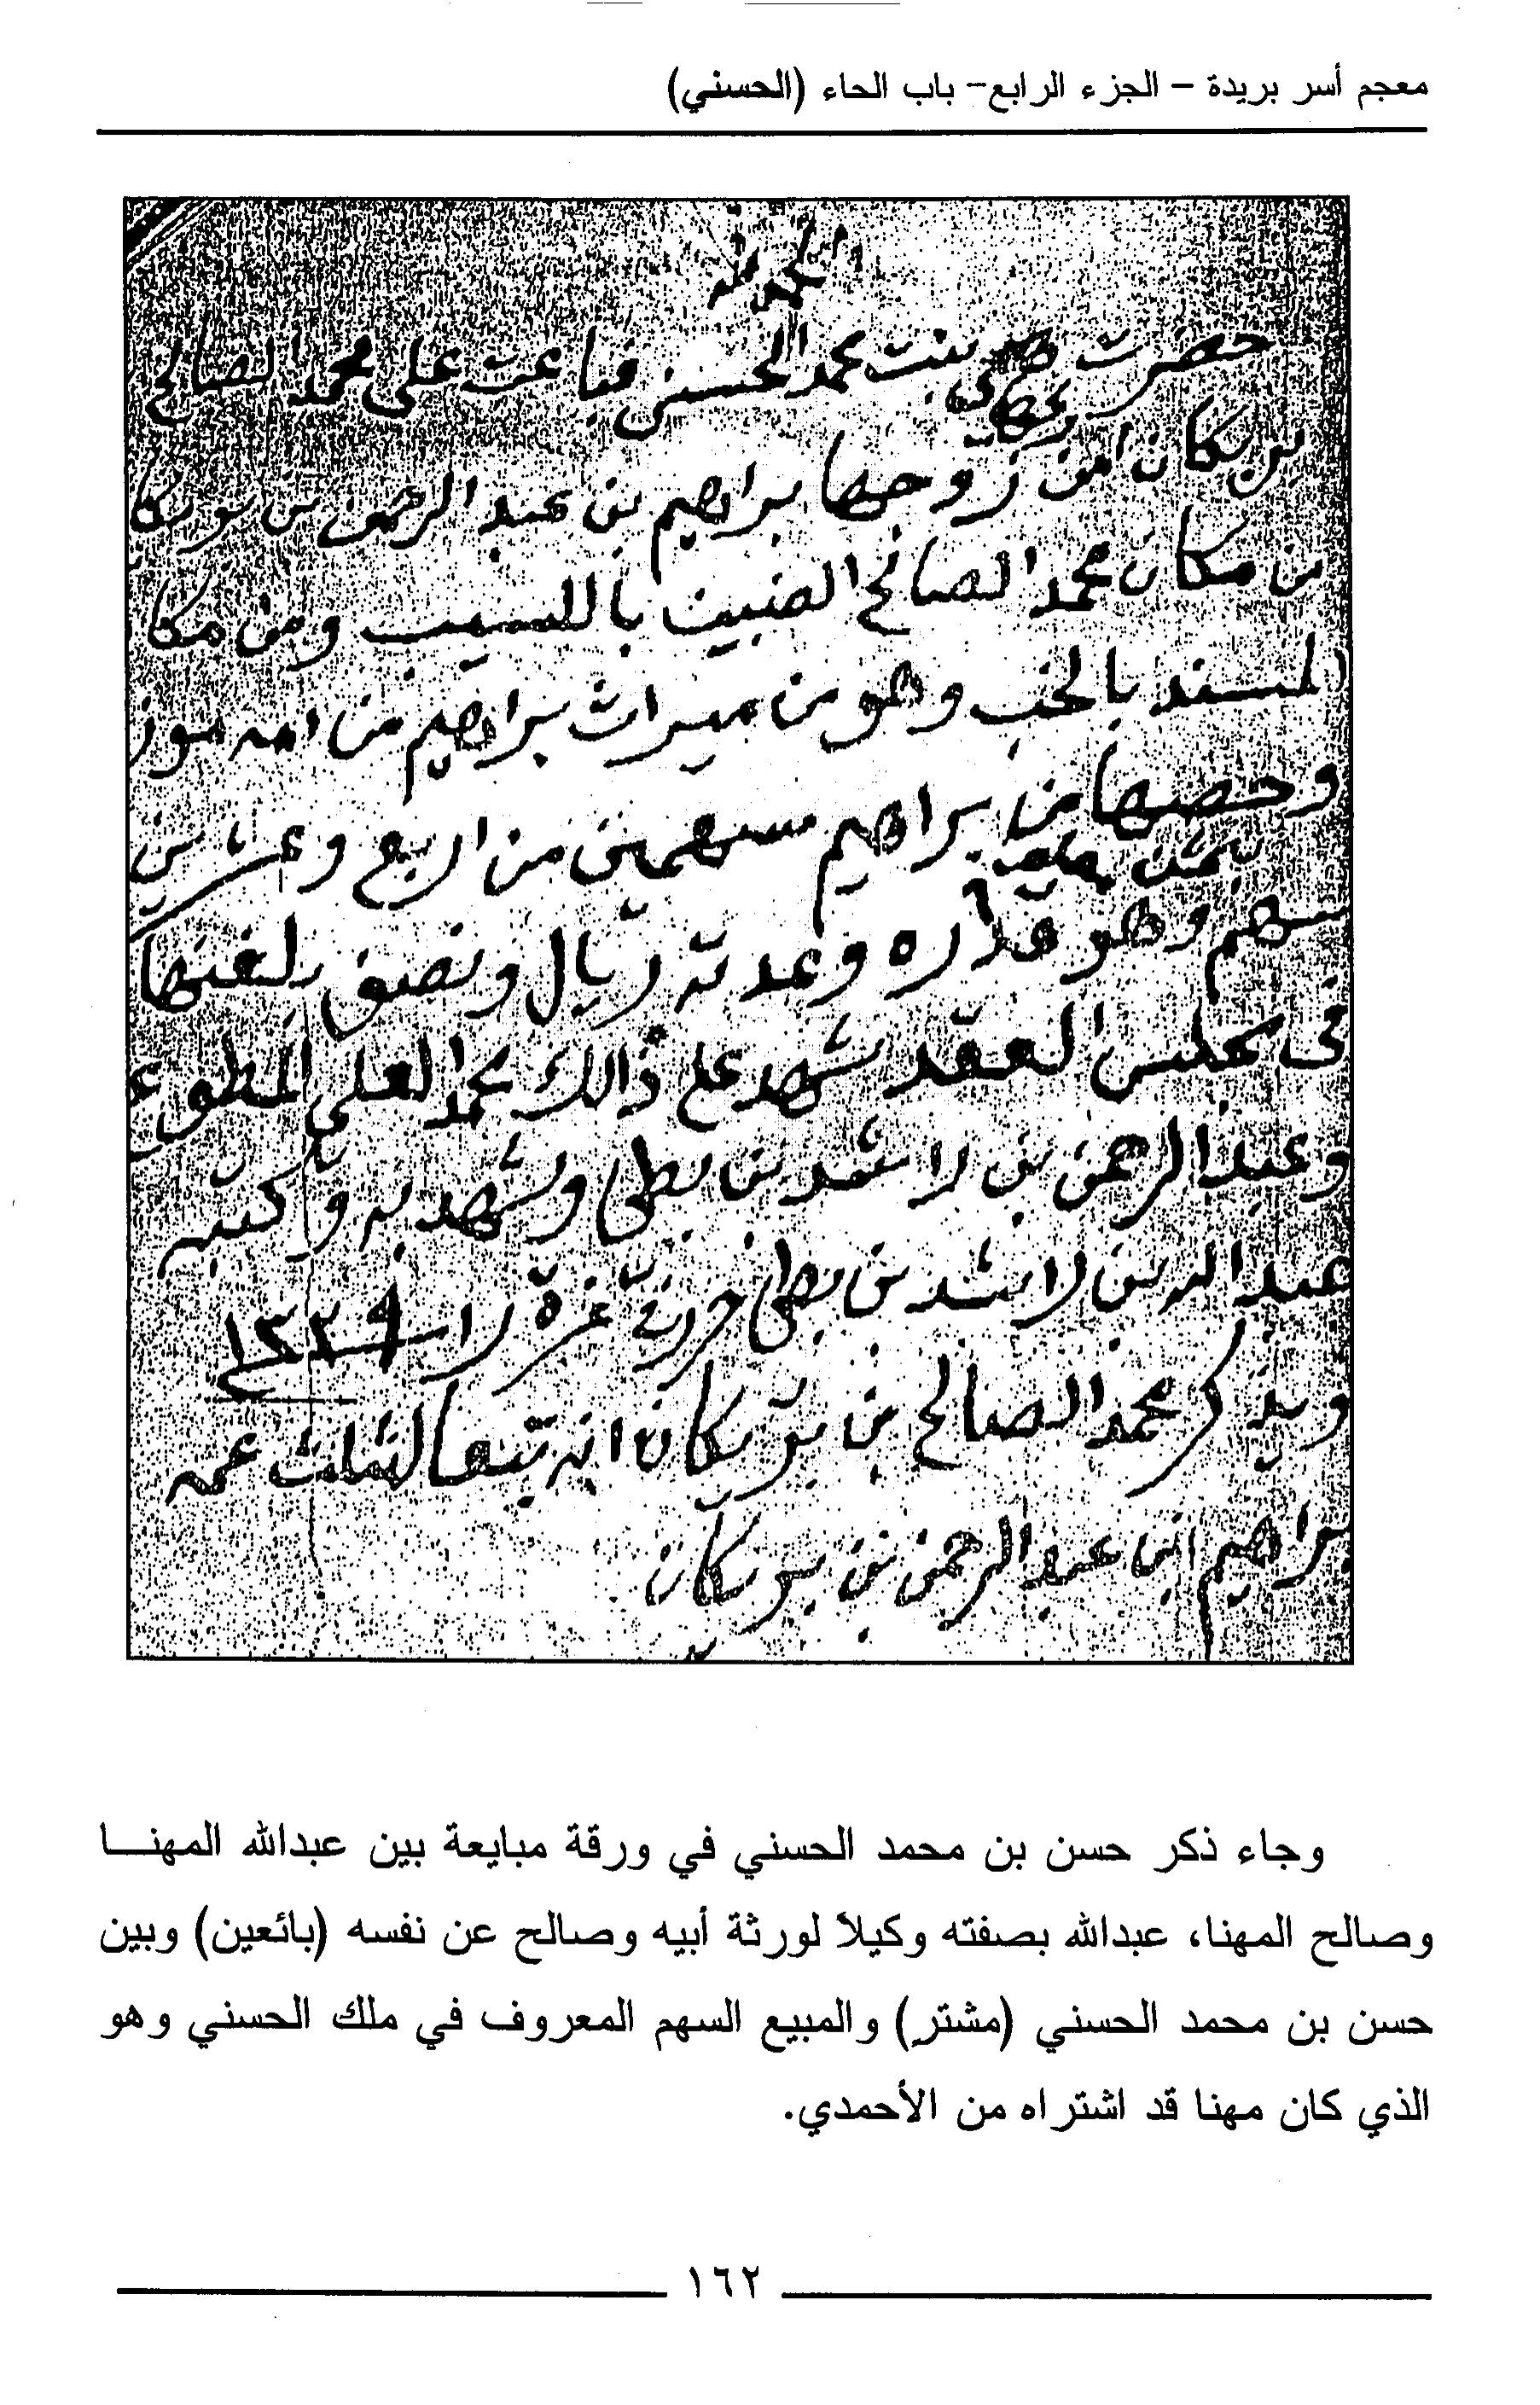 معجم أسر بريدة – الجزء الرابع– باب الحاء (الحسني)
الحمد لله
حضرت بنت محمد الحسني فباعت على محمد الصالح
من زوجها براهيم بن عبد الرحمن بن
من مكان محمد الصالح باللسيب ومن مكا
المسند بالخب وهو من ميراث براهيم من امه موز
وحصها من براهيم سهمين من اربع وعشرين
بثمن
سهم وهو قداره وعدته ريال ونصف بلغنها
في مجلس العقد شهد على ذالك محمد العلي المطوع
وعبد الرحمن بن راشد بن بطي وشهد به وكتبه
عبد الله بن راشد بن بطي غرة را ١٣٣٩
ويذكر محمد الصالح بن انه الثلث عمه
براهيم ابن عبد الرحمن بن
وجاء ذكر حسن بن محمد الحسني في ورقة مبايعة بين عبدالله المهنـــا
وصالح المهنا، عبدالله بصفته وكيلاً لورثة أبيه وصالح عن نفسه (بائعين) وبين
حسن بن محمد الحسني (مشتر) والمبيع السهم المعروف في ملك الحسني وهو
الذي كان مهنا قد اشتراه من الأحمدي.
١٦٢